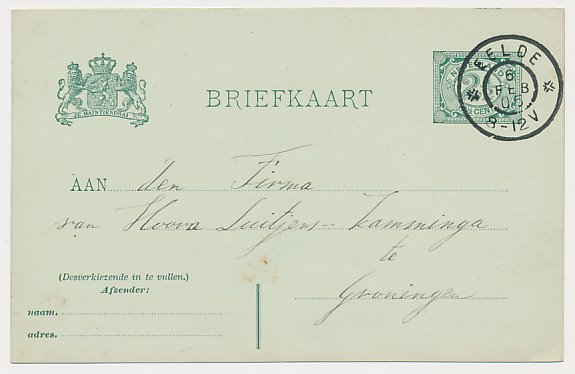 EELDE
6
FEB
05
8-12V
JE MAINTIENDRAI
BRIEFKAART
CENT
AAN den Firma
van Hoorn Luitjens-Kamminga
te
Groningen
(Desverkiezende in te vullen.)
Afzender:
naam.
adres.